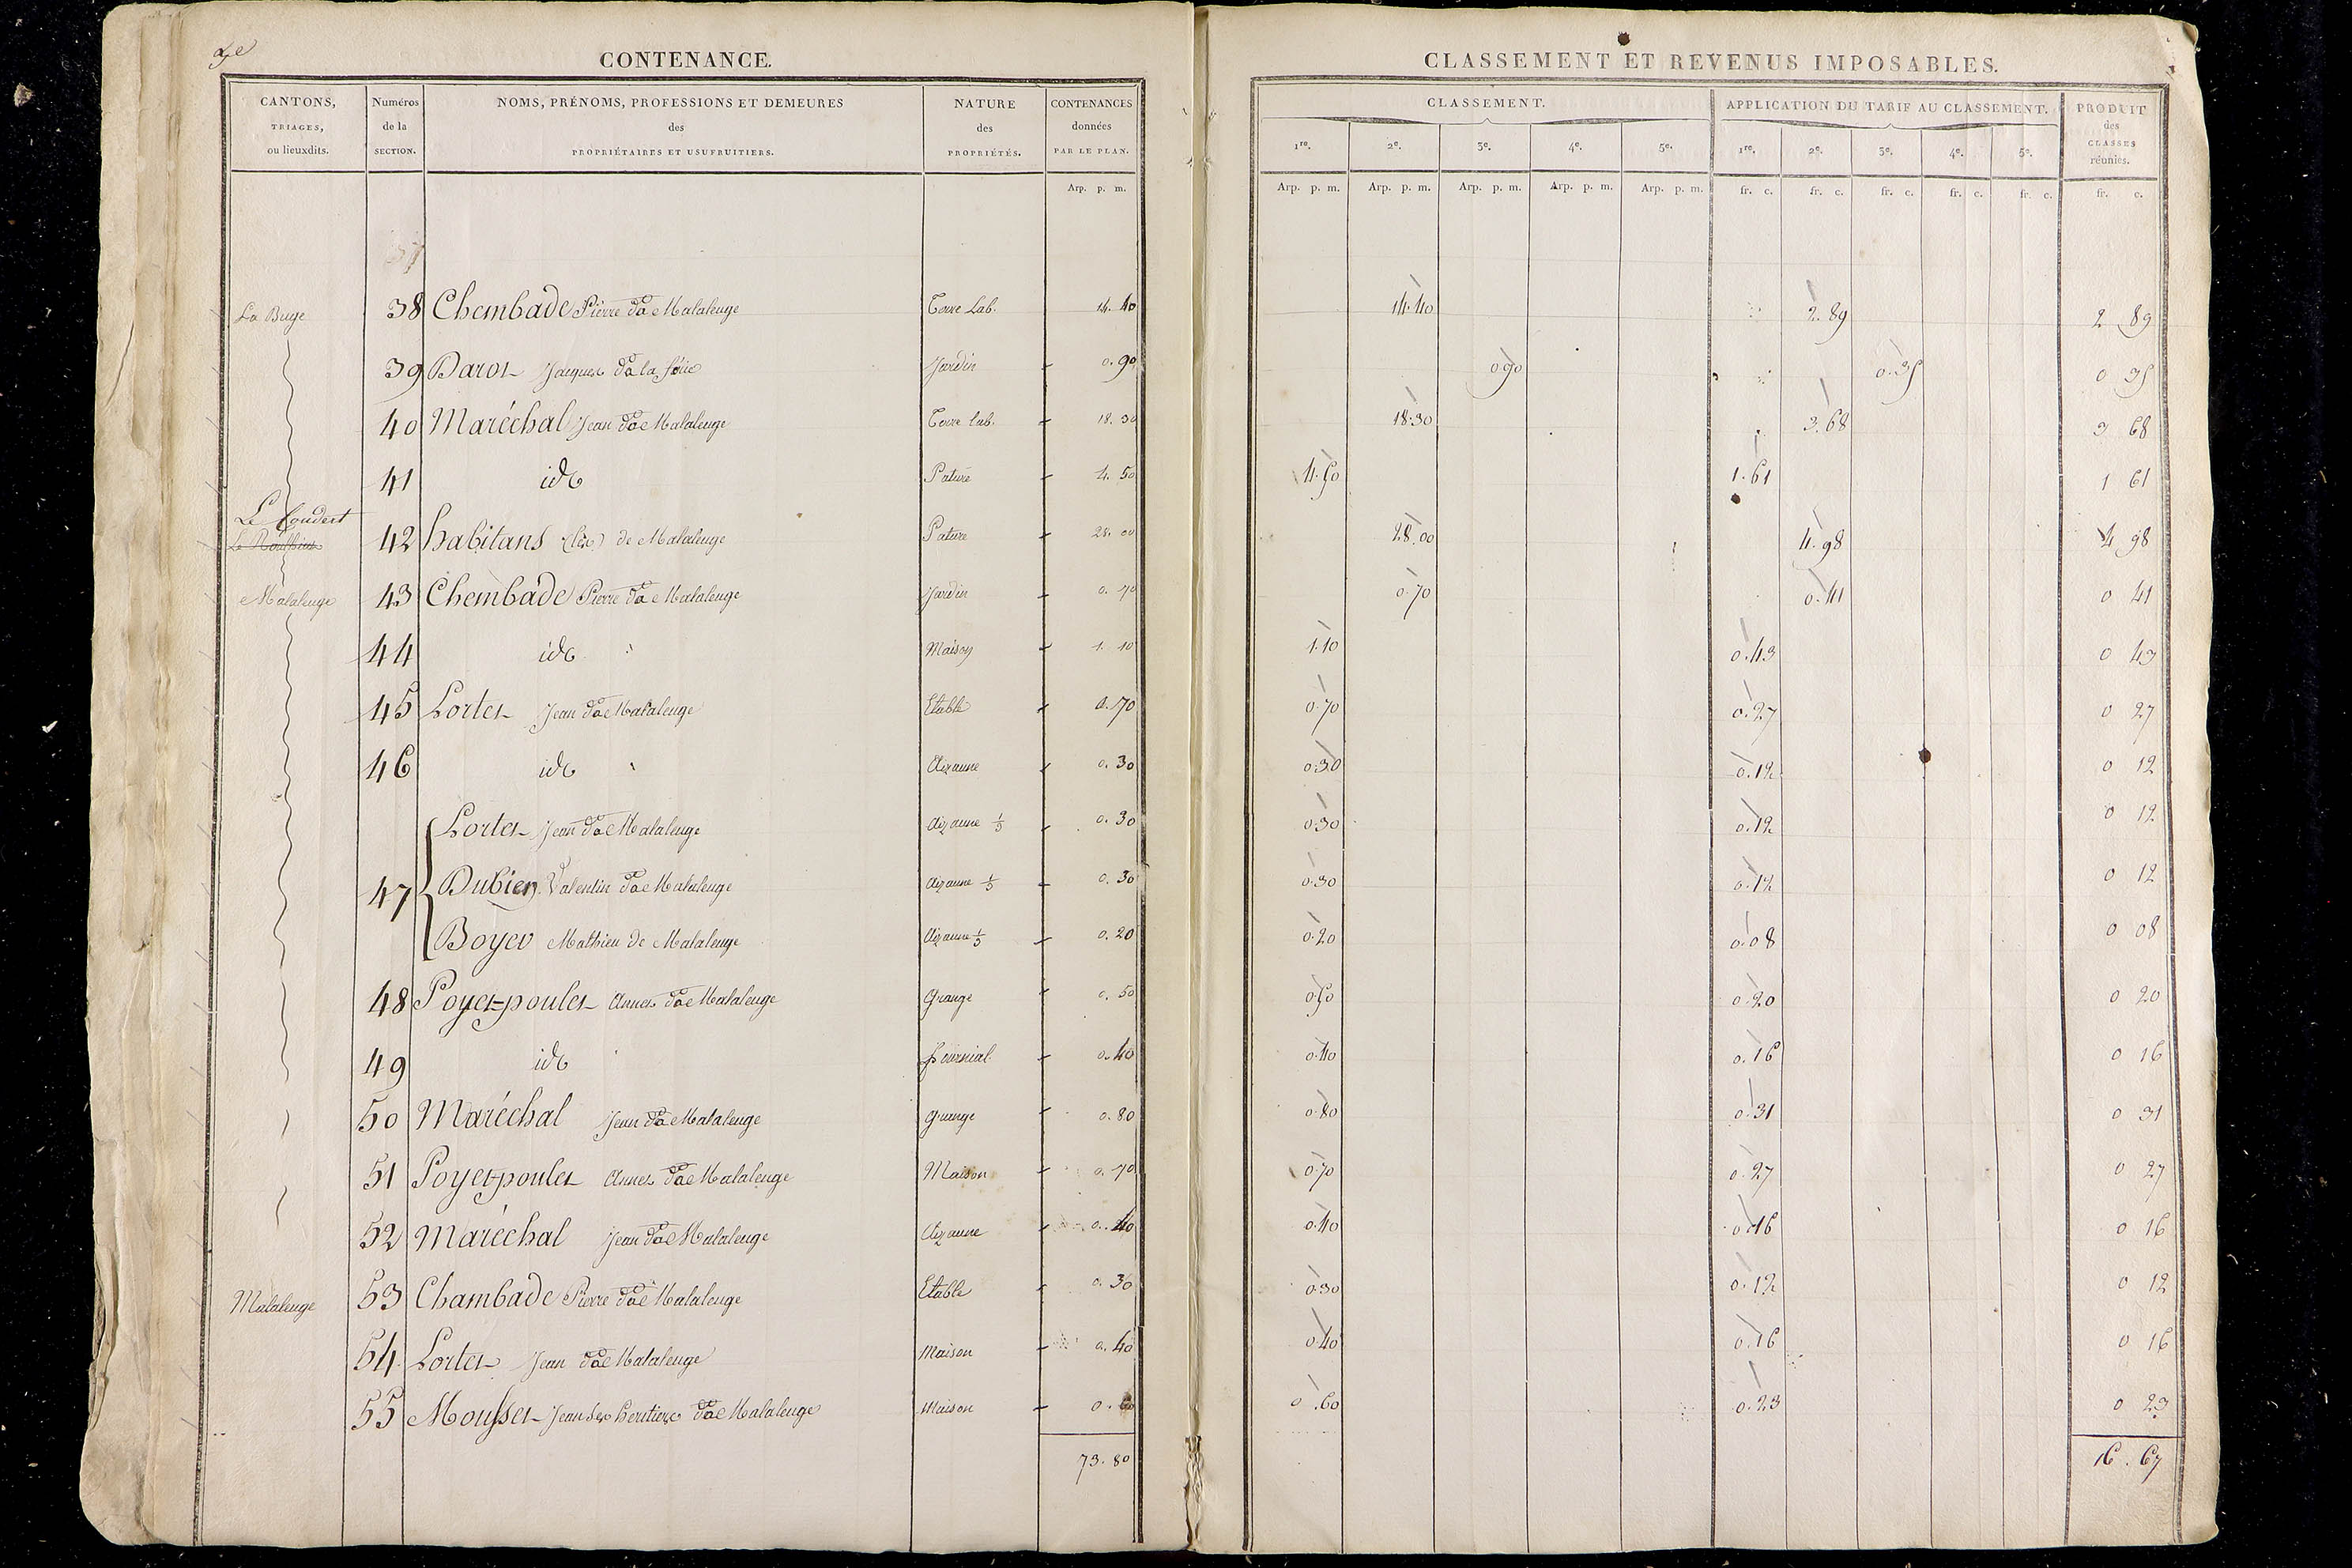 CONTENANCE.
CANTONS, TRIAGES, ou lieuxdits. Numéros de la SECTION. NOMS, PRÉNOMS, PROFESSIONS ET DEMEURES des PROPRIÉTAIRES ET USUFRUITIERS. NATURE des PROPRIÉTÉS. CONTENANCES données PAR LE PLAN.
Arp. p. m.
37
La Buge 38 Chembade Pierre de Malaleuge Terre Lab. 14. 40
39 Jacques Jardin 0. 90
40 Maréchal Jean de Malaleuge Terre lab. 18. 30
41 id Pature 4. 50
Le Coudert
42 habitans (les) de Malaleuge Pature 28. 00
Malaleuge 43 Chembade Pierre de Malaleuge Jardin 0. 70
44 id Maison 1. 10
45 Jean de Malaleuge Etable 0. 70
46 id Aizaune 0. 30
Jean de Malaleuge Aizaune 1/3 0. 30
47 Dubien Valentin de Malaleuge Aizaune 1/3 0. 30
Boyer Mathieu de Malaleuge Aizaune 1/3 0. 20
48 de Malaleuge Grange 0. 50
49 id fournial 0. 40
50 Maréchal Jean de Malaleuge Grange 0. 80
51 de Malaleuge Maison 0. 70
52 Maréchal Jean de Malaleuge Aizaune 0. 40
Malaleuge 53 Chambade Pierre de Malaleuge Etable 0. 30
54 Jean de Malaleuge Maison 0. 40
55 Jean de Malaleuge Maison 0. 60
73. 80
CLASSEMENT ET REVENUS IMPOSABLES.
CLASSEMENT. APPLICATION DU TARIF AU CLASSEMENT. PRODUIT des CLASSES réunies.
1re. 2e. 3e. 4e. 5e. 1re. 2e. 3e. 4e. 5e.
Arp. p. m. Arp. p. m. Arp. p. m. Arp. p. m. Arp. p. m. fr. c. fr. c. fr. c. fr. c. fr. c. fr. c.
14.40 2.89 2 89
0.90 0.35 0 35
18.30 3.68 3 68
4.50 1.61 1 61
28.00 4.98 4 98
0.70 0.41 0 41
1.10 0.43 0 43
0.70 0.27 0 27
0.30 0.12 0 12
0.30 0.12 0 12
0.30 0.12 0 12
0.20 0.08 0 08
0.50 0.20 0 20
0.40 0.16 0 16
0.80 0.31 0 31
0.70 0.27 0 27
0.40 0.16 0 16
0.30 0.12 0 12
0.40 0.16 0 16
0.60 0.23 0 23
16. 67